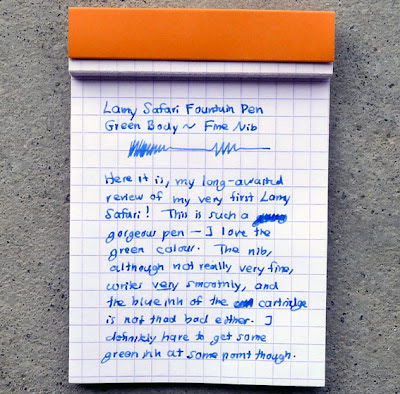 Lamy Safari Fountain Pen
Green Body ~ Fine Nib
Here it is, my long-awaited
review of my very first Lamy
Safari! This is such a
gorgeous pen — I love the
green colour. The nib,
although not really very fine,
writes very smoothly, and
the blue ink of the cartridge
is not that bad either. I
definitely have to get some
green ink at some point though.